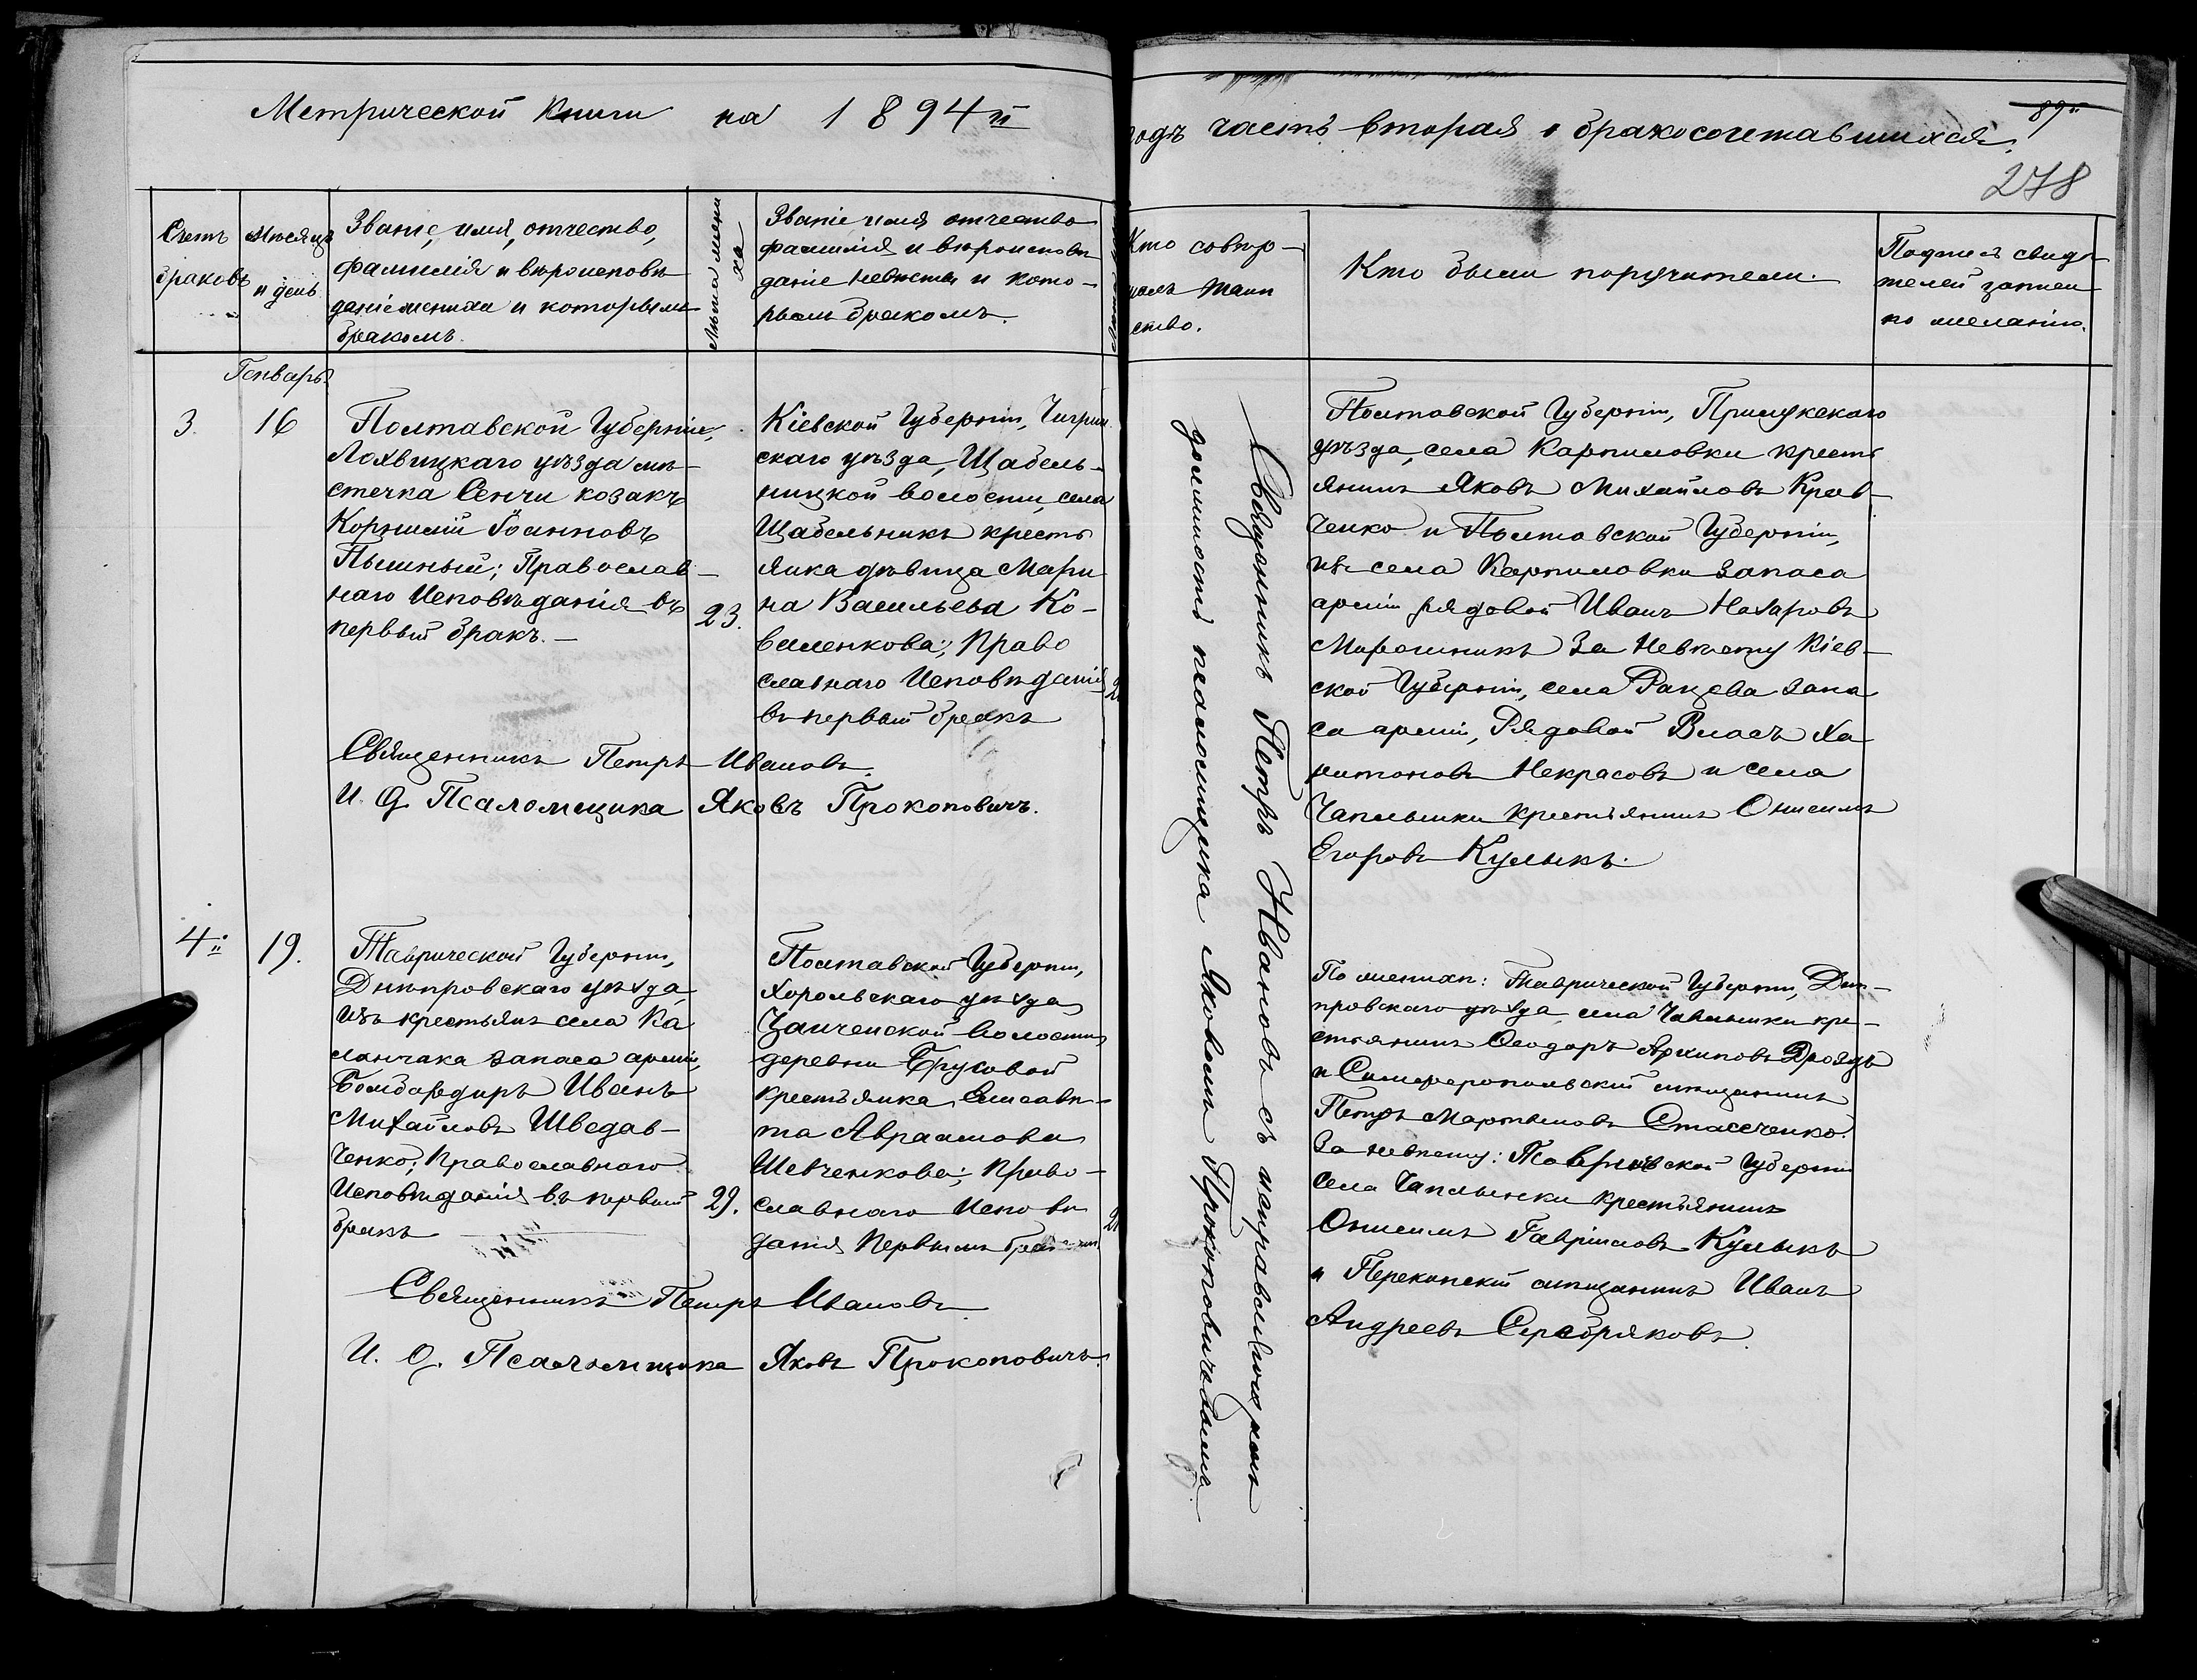 Метрической Книги на 1894й
годъ часть вторая о бракосочетавшихся.
89
278
Счетъ
браковъ
Мѣсяцъ
и день
Званіе, имя, отчество,
фамилія и вѣроисповѣ
даніе жениха и которымъ
бракомъ.
Лѣта жени
ха
Званіе имя отчество
фамилія и вѣроисповѣ
даніе невѣсты и кото-
рымъ бракомъ.
Кто совер-
шалъ таин
ство.
Кто были поручители.
Подпись свидѣ
телей записи
по желанію.
Генварь
3.
16
Полтавской Губерніи,
Лохвицкаго уѣзда мѣ-
стечка Сенчи козакъ
Корнилій Іоанновъ
Пышный; Православ-
наго Исповѣданія въ
первый бракъ.-
23.
Кіевской Губерніи, Чигрин
скаго уѣзда, Щабель-
ницкой волости, села
Щабельникъ кресть
янка дѣвица Мари
на Васильева Ко-
валенкова; Право
славнаго Исповѣданія
въ первый бракъ
Священникъ Петръ Ивановъ.
И. д. Псаломщика Яковъ Прокоповичъ.
Священникъ Петръ Ивановъ съ исправляющимъ
должность псаломщика Яковомъ Прокоповичемъ.
Полтавской Губерніи, Прилукскаго
уѣзда, села Карпиловки кресть
янинъ Яковъ Михайловъ Крав-
ченко и Полтавской Губерніи,
села Карпиловки запаса
арміи рядовой Иванъ Назаровъ
Мирошникъ За Невѣсту Кіев-
ской Губерніи, села Рацева запа
са арміи, Рядовой Власъ Ха
ритоновъ Некрасовъ и села
Чаплынки крестьянинъ Онисимъ
Егоровъ Кулыкъ.
4й
19.
Таврической Губерніи,
Днѣпровскаго уѣзда,
изъ крестьянъ села Ка
ланчака запаса арміи,
Бомбардиръ Иванъ
Михайловъ Шведав-
ченко; Православнаго
Исповѣданія въ первый
бракъ
29.
Полтавской Губерніи,
Хорольскаго уѣзда
волости
деревни
крестьянка Елисаве-
та Авраамова
Шевченкова; Право-
славнаго Исповѣ
данія Первымъ
Священникъ Петръ Ивановъ.
И. д. Псаломщика Яковъ Прокоповичъ.
По женихѣ: Таврической Губерніи, Днѣ-
провскаго уѣзда села Чаплынки кре-
стьянинъ Ѳеодоръ Архиповъ Дроздъ
и Симферопольскій мѣщанинъ
Петръ Мартыновъ Стасченко.
За невѣсту: Таврической Губерніи
Села Чаплынки крестьянинъ
Онисимъ Гавріиловъ Кулыкъ
и Перекопскій мѣщанинъ Иванъ
Андреевъ Серебряковъ.